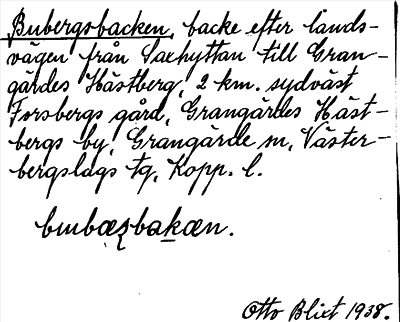 Bubergsbacken, backe efter lands-
vägen från Saxhyttan till Gran-
gärdes Hästberg, 2 km. sydväst
Forsbergs gård, Grangärdes Häst-
bergs by, Grangärde sn, Väster-
bergslags tg, Kopp. l.
Otto Blixt 1938.